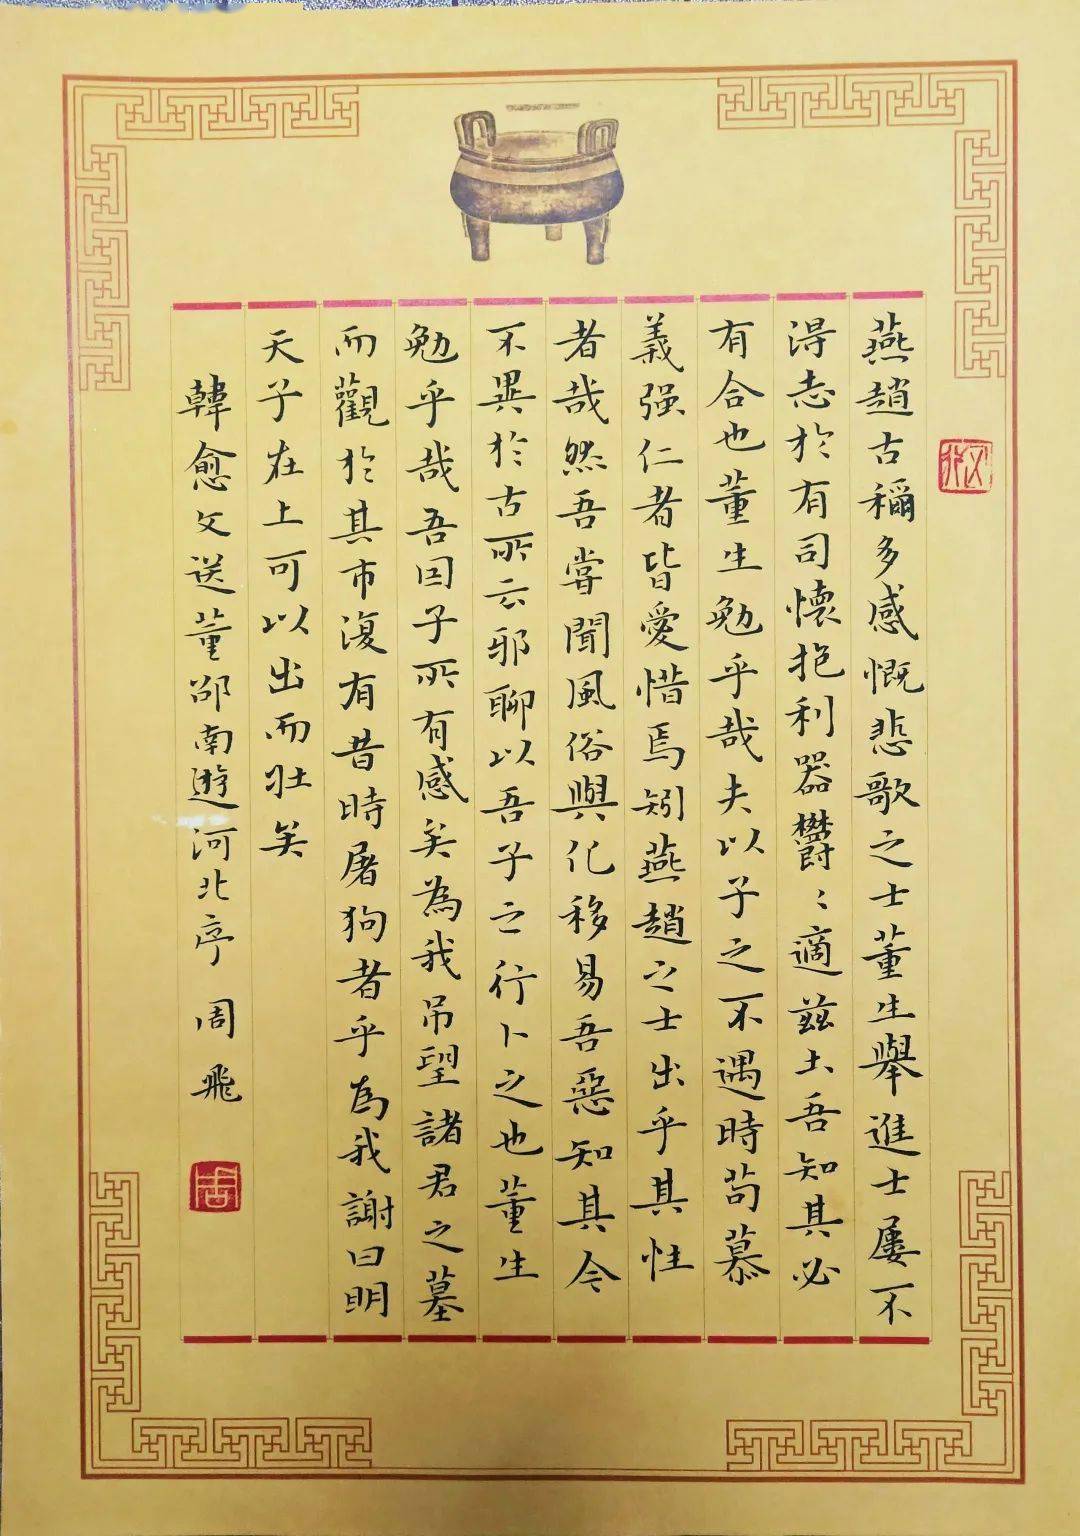 燕趙古稱多感慨悲歌之士董生舉進士屢不
得志於有司懷抱利器鬱〻適茲土吾知其必
有合也董生勉乎哉夫以子之不遇時苟慕
義强仁者皆愛惜焉矧燕趙之士出乎其性
者哉然吾嘗聞風俗與化移易吾惡知其今
不異於古所云邪聊以吾子之行卜之也董生
勉乎哉吾因子所有感矣為我吊望諸君之墓
而觀於其市復有昔時屠狗者乎為我謝曰明
天子在上可以出而壯矣
韓愈文送董邵南遊河北序 周飛
周